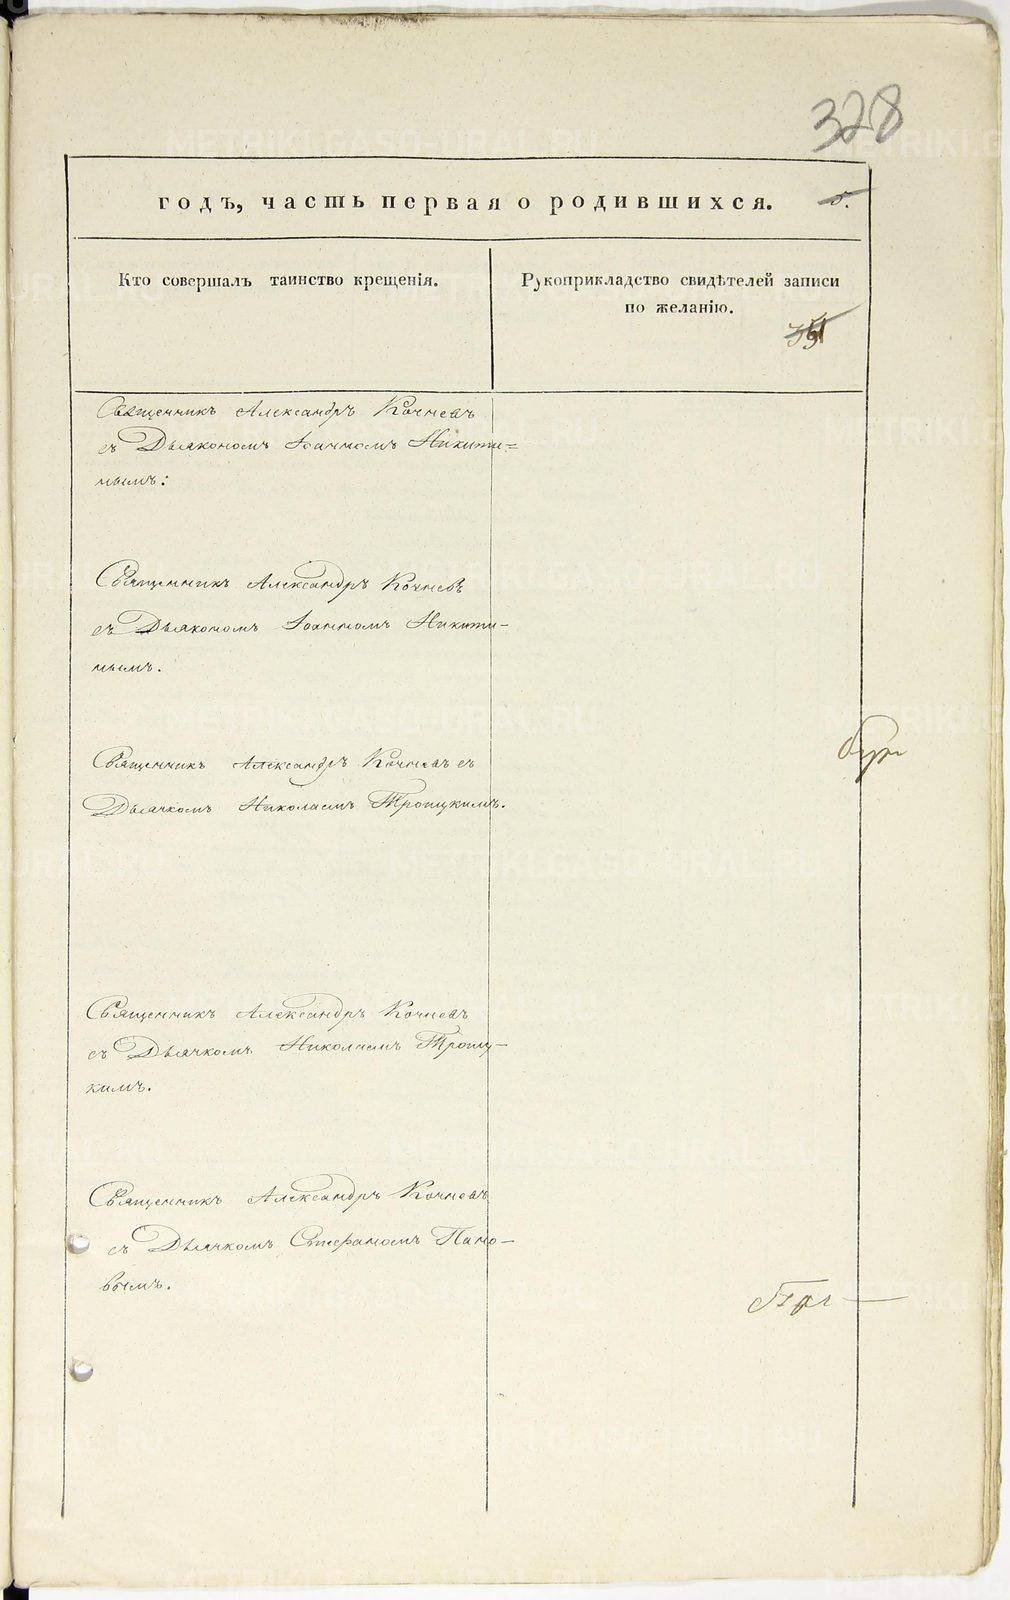 328
годъ, часть первая о родившихся. 5.
Кто совершалъ таинство крещенія.
Рукоприкладство свидѣтелей записи
по желанію.
Священникъ Александръ Кочневъ
съ Дьякономъ Іоанномъ Никити=
нымъ:
Священникъ Александръ Кочневъ
съ Дьякономъ Іоанномъ Никити-
нымъ.
Священникъ Александръ Кочневъ съ
Дьячкомъ Николаемъ Троицкимъ.
Священникъ Александръ Кочневъ
съ Дьячкомъ Николаемъ Троиц-
кимъ.
Священникъ Александръ Кочневъ
съ Дьячкомъ Стефаномъ Пано-
вымъ.
METRIKI.GASO-URAL.RU